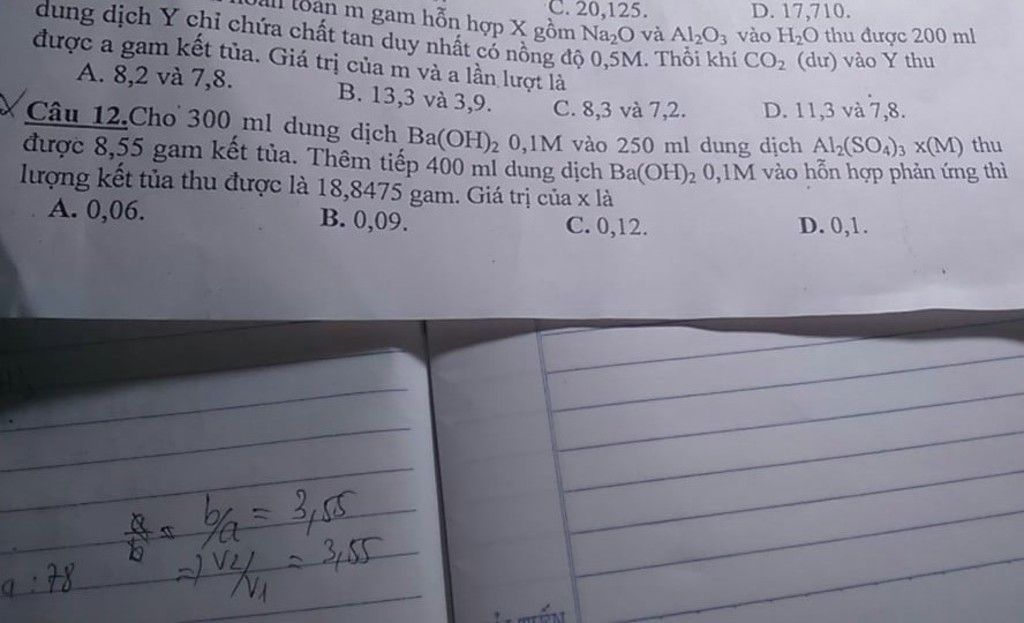 C. 20,125. D. 17,710.
toàn m gam hỗn hợp X gồm Na₂O và Al₂O₃ vào H₂O thu được 200 ml
dung dịch Y chỉ chứa chất tan duy nhất có nồng độ 0,5M. Thổi khí CO₂ (dư) vào Y thu
được a gam kết tủa. Giá trị của m và a lần lượt là
A. 8,2 và 7,8. B. 13,3 và 3,9. C. 8,3 và 7,2. D. 11,3 và 7,8.
Câu 12.Cho 300 ml dung dịch Ba(OH)₂ 0,1M vào 250 ml dung dịch Al₂(SO₄)₃ x(M) thu
được 8,55 gam kết tủa. Thêm tiếp 400 ml dung dịch Ba(OH)₂ 0,1M vào hỗn hợp phản ứng thì
lượng kết tủa thu được là 18,8475 gam. Giá trị của x là
A. 0,06. B. 0,09. C. 0,12. D. 0,1.
b/a = 3,55
=) V2/V1 = 3,55
a : 78